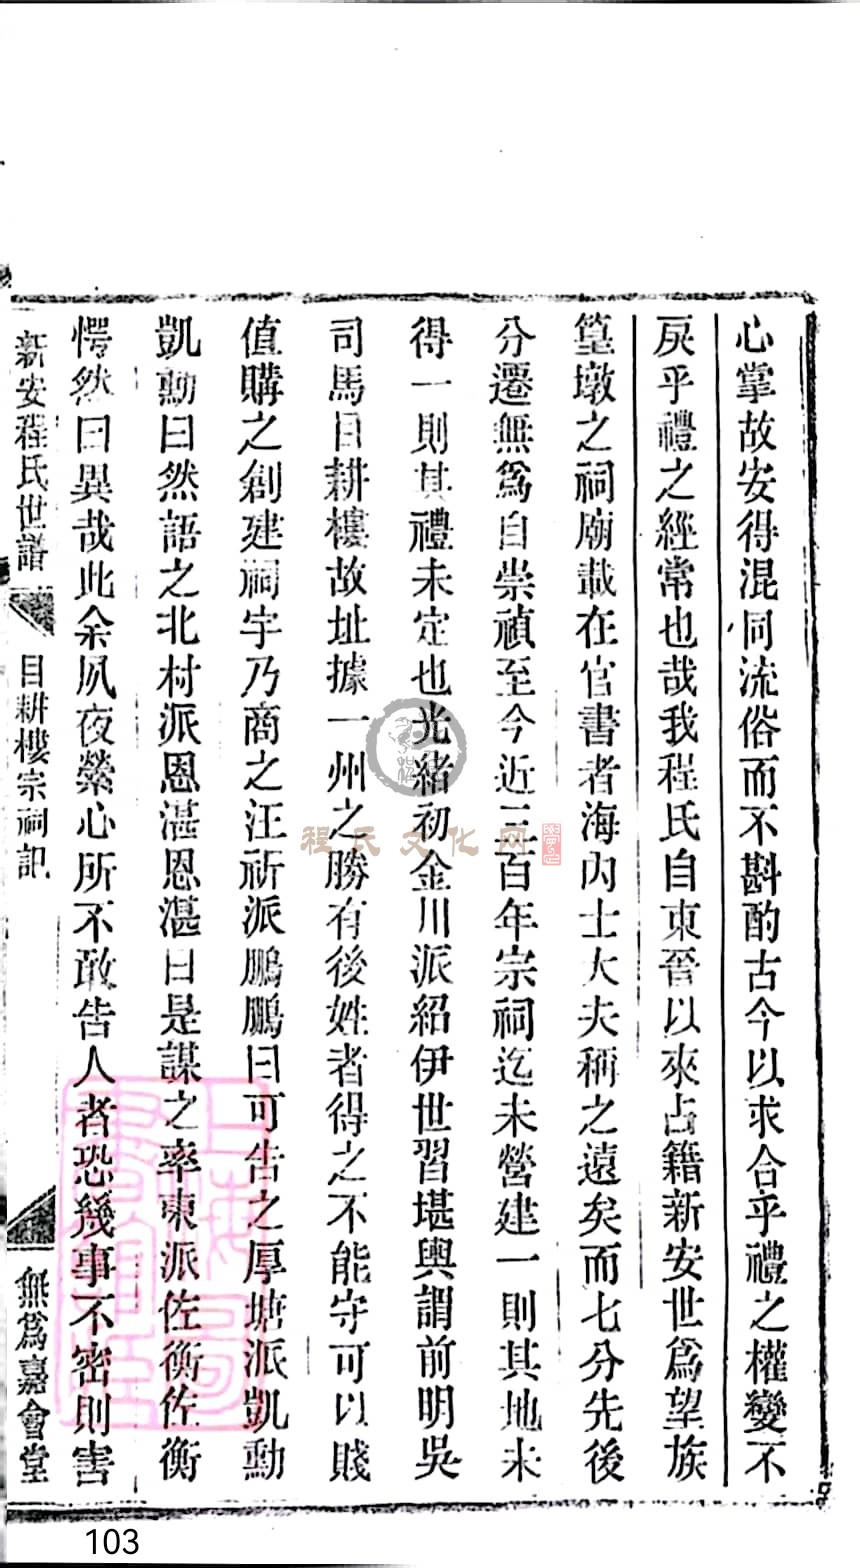 心掌故安得混同流俗而不斟酌古今以求合乎禮之權變不
戾乎禮之經常也哉我程氏自東晉以來占籍新安世爲望族
篁墩之祠廟載在官書者海內士大夫稱之遠矣而七分先後
分遷無爲自崇禎至今近三百年宗祠迄未營建一則其地未
得一則其禮未定也光緒初金川派紹伊世習堪輿謂前明吳
司馬目耕樓故址據一州之勝有後姓者得之不能守可以賤
值購之創建祠宇乃商之汪祈派鵬鵬曰可告之厚塘派凱勳
凱勳曰然語之北村派恩湛恩湛曰是謀之率東派佐衡佐衡
愕然曰異哉此余夙夜縈心所不敢告人者恐幾事不密則害
新安程氏世譜
目耕樓宗祠記
無爲嘉會堂
程氏文化网
103